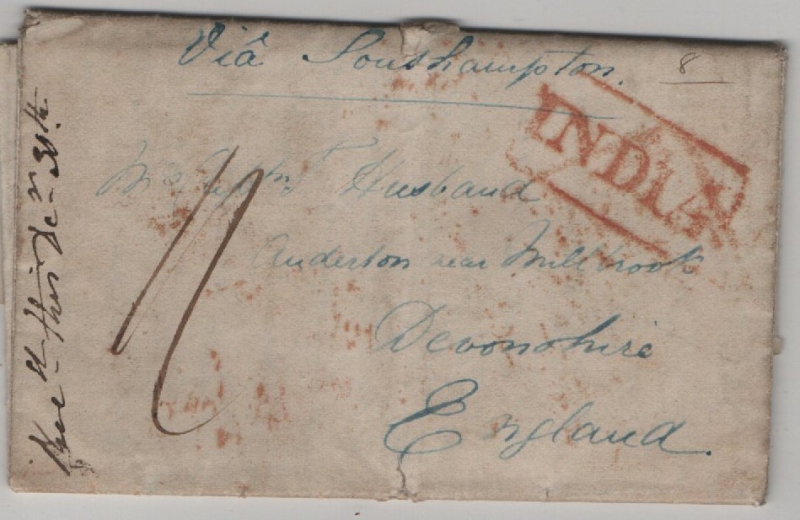 Viâ Southampton.
8
INDIA
Husband
Anderton near Millbrook
Devonshire
England.
Recd this Decr 30th.